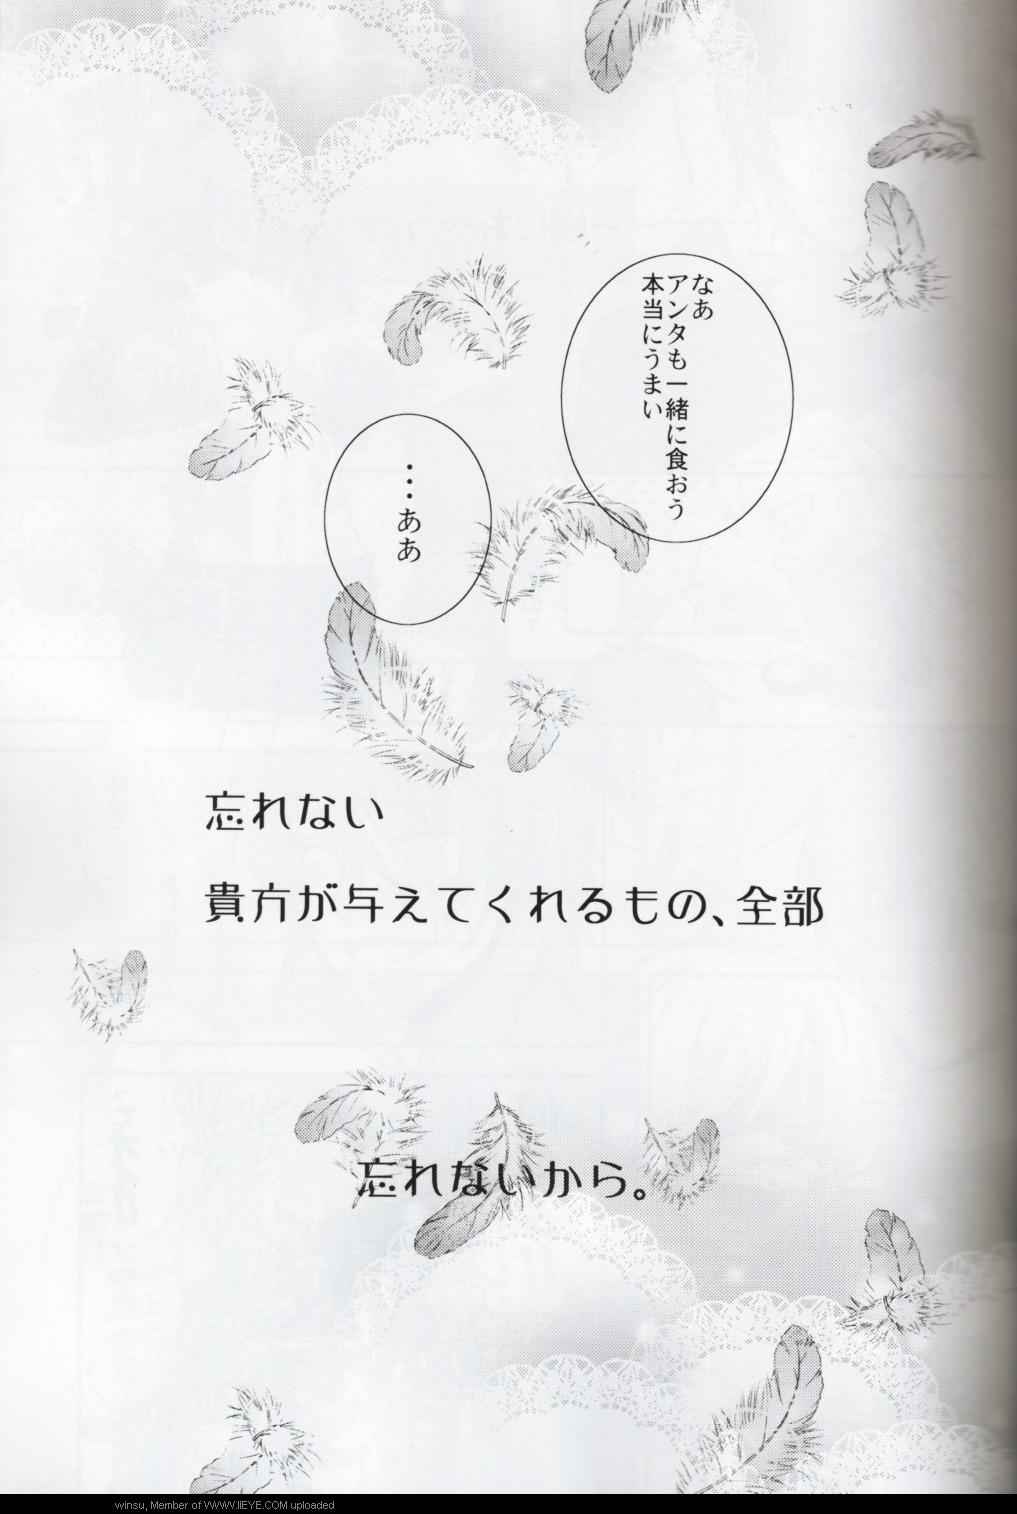 なあ
アンタも一緒に食おう
本当にうまい
・・・ああ
忘れない
貴方が与えてくれるもの、全部
忘れないから。
winsu, Member of WWW.IIEYE.COM uploaded